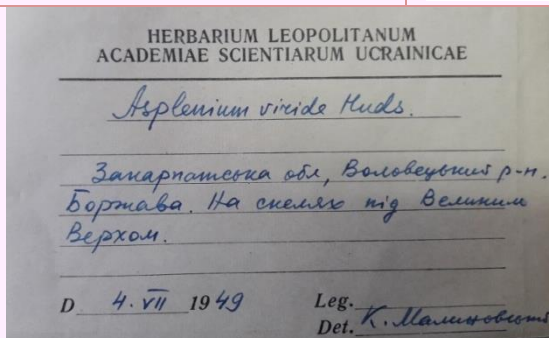 HERBARIUM LEOPOLITANUM
ACADEMIAE SCIENTIARUM UCRAINICAE
Asplenium viride Huds.
Закарпатська обл, Воловецький р-н.
Боржава. На скелях під Великим
Верхом.
D 4. VII 1949 Leg.
Det. К. Малиновський